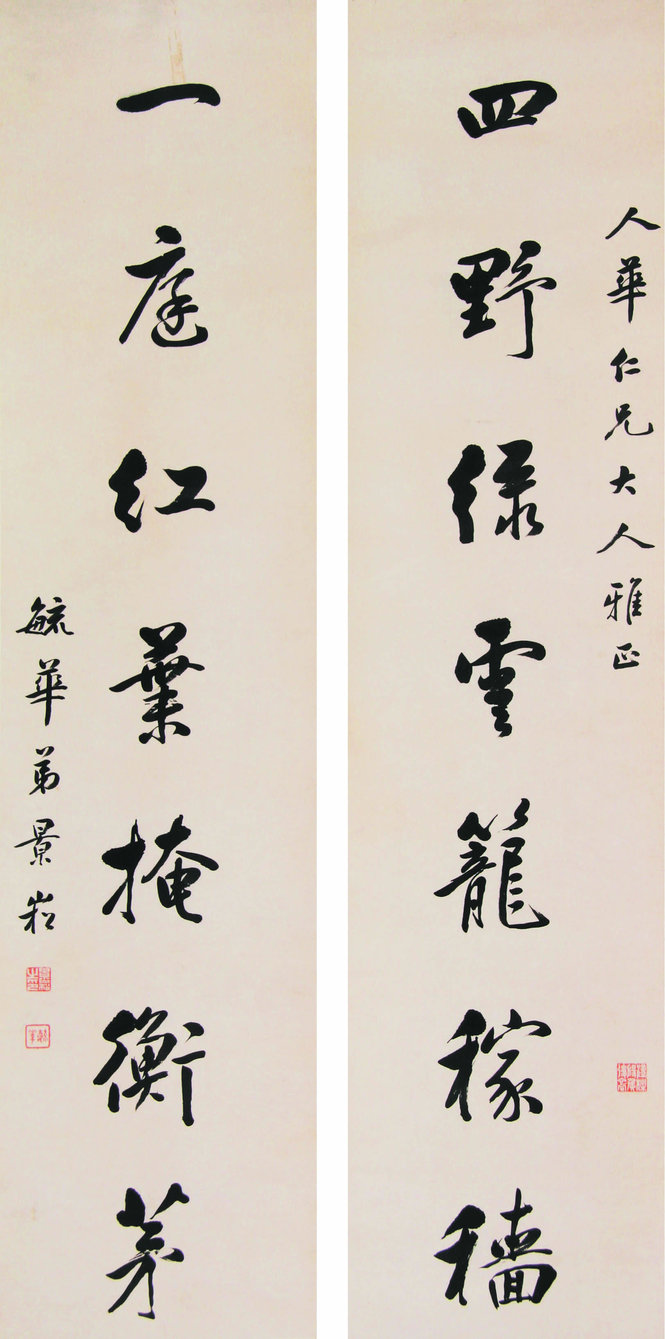 人華仁兄大人雅正
四野绿雲籠稼穡
一庭红葉掩衡茅
毓華弟景崧